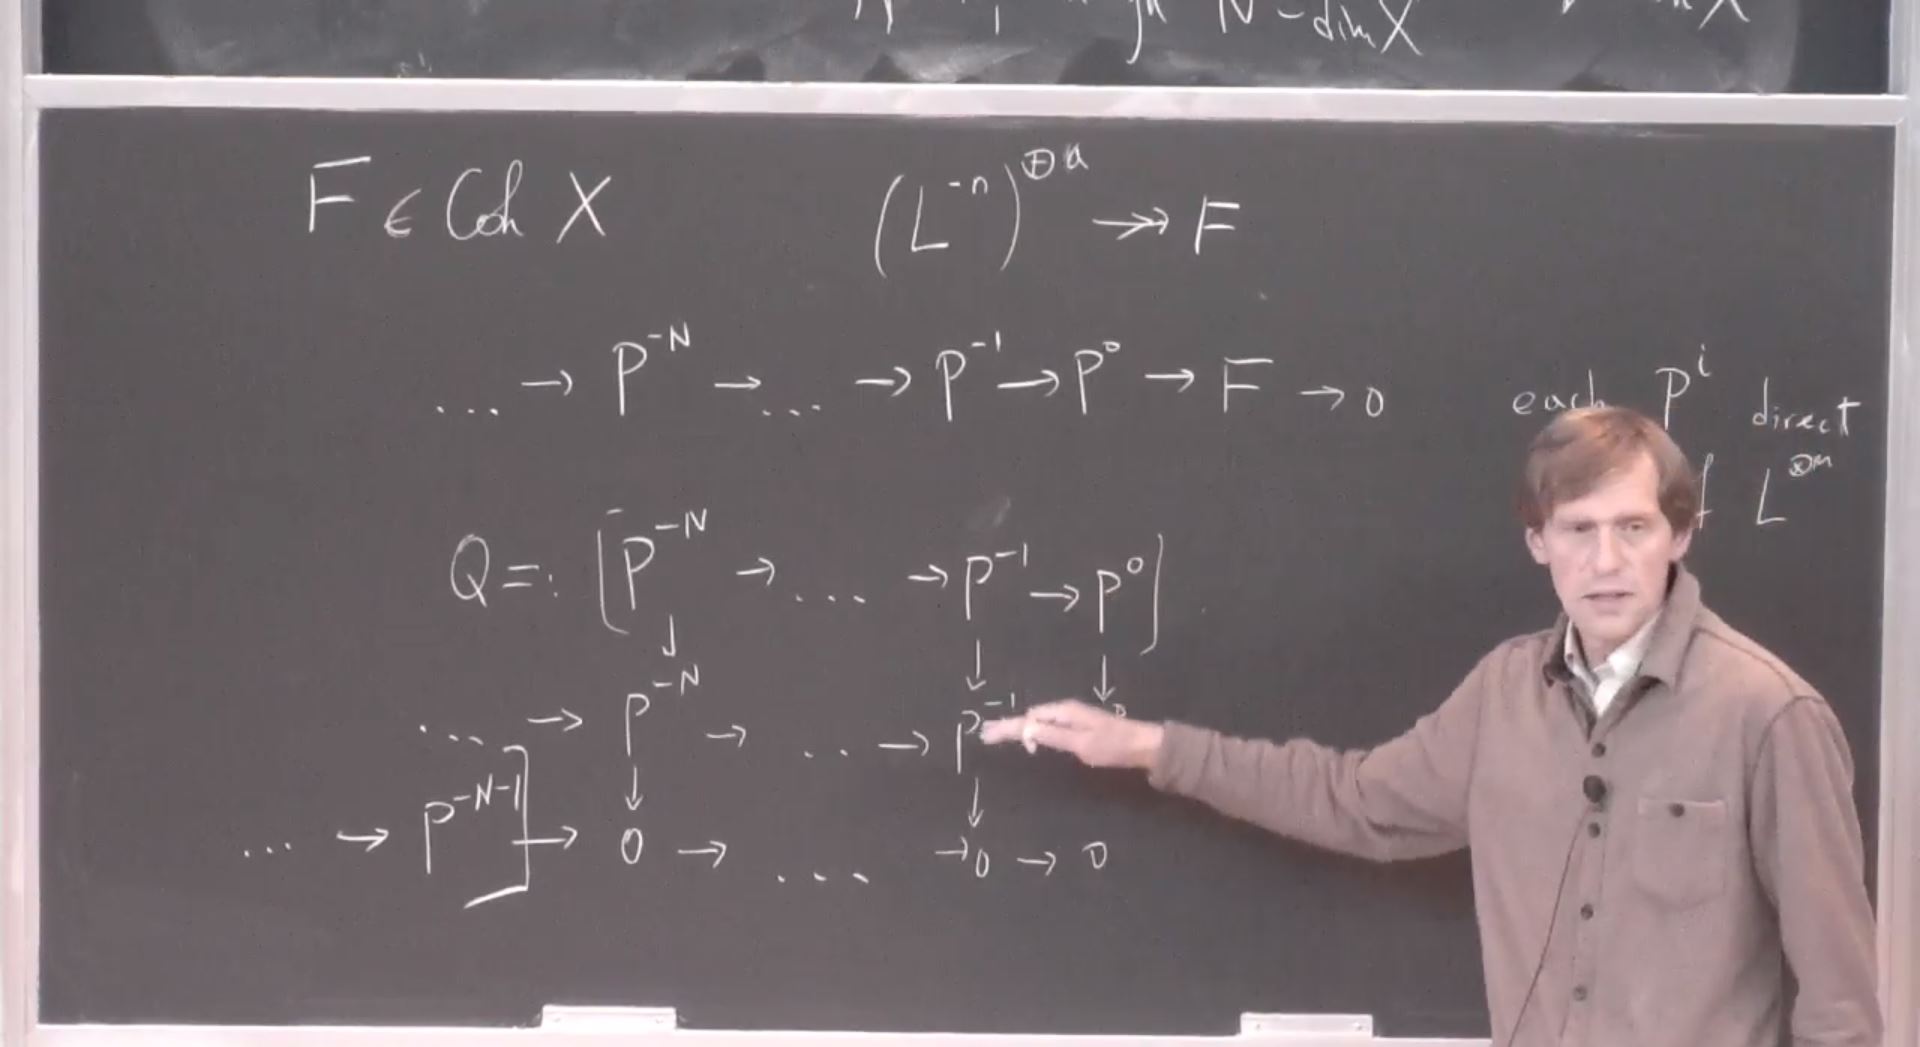 N - dim X X
F ∈ Coh X (L^{-n})^{⊕a} ↠ F
... → P^{-N} → ... → P^{-1} → P^0 → F → 0
each P^i direct
L^{⊗m}
Q =: [P^{-N} → ... → P^{-1} → P^0]
↓ ↓ ↓
... → P^{-N} → ... → P^{-1}
↓ ↓
... → P^{-N-1}] → 0 → ... → 0 → 0